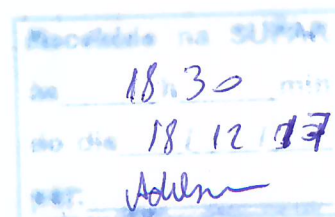 Recebido na SUPAR
às 18 h 30 min
do dia 18 / 12 / 17